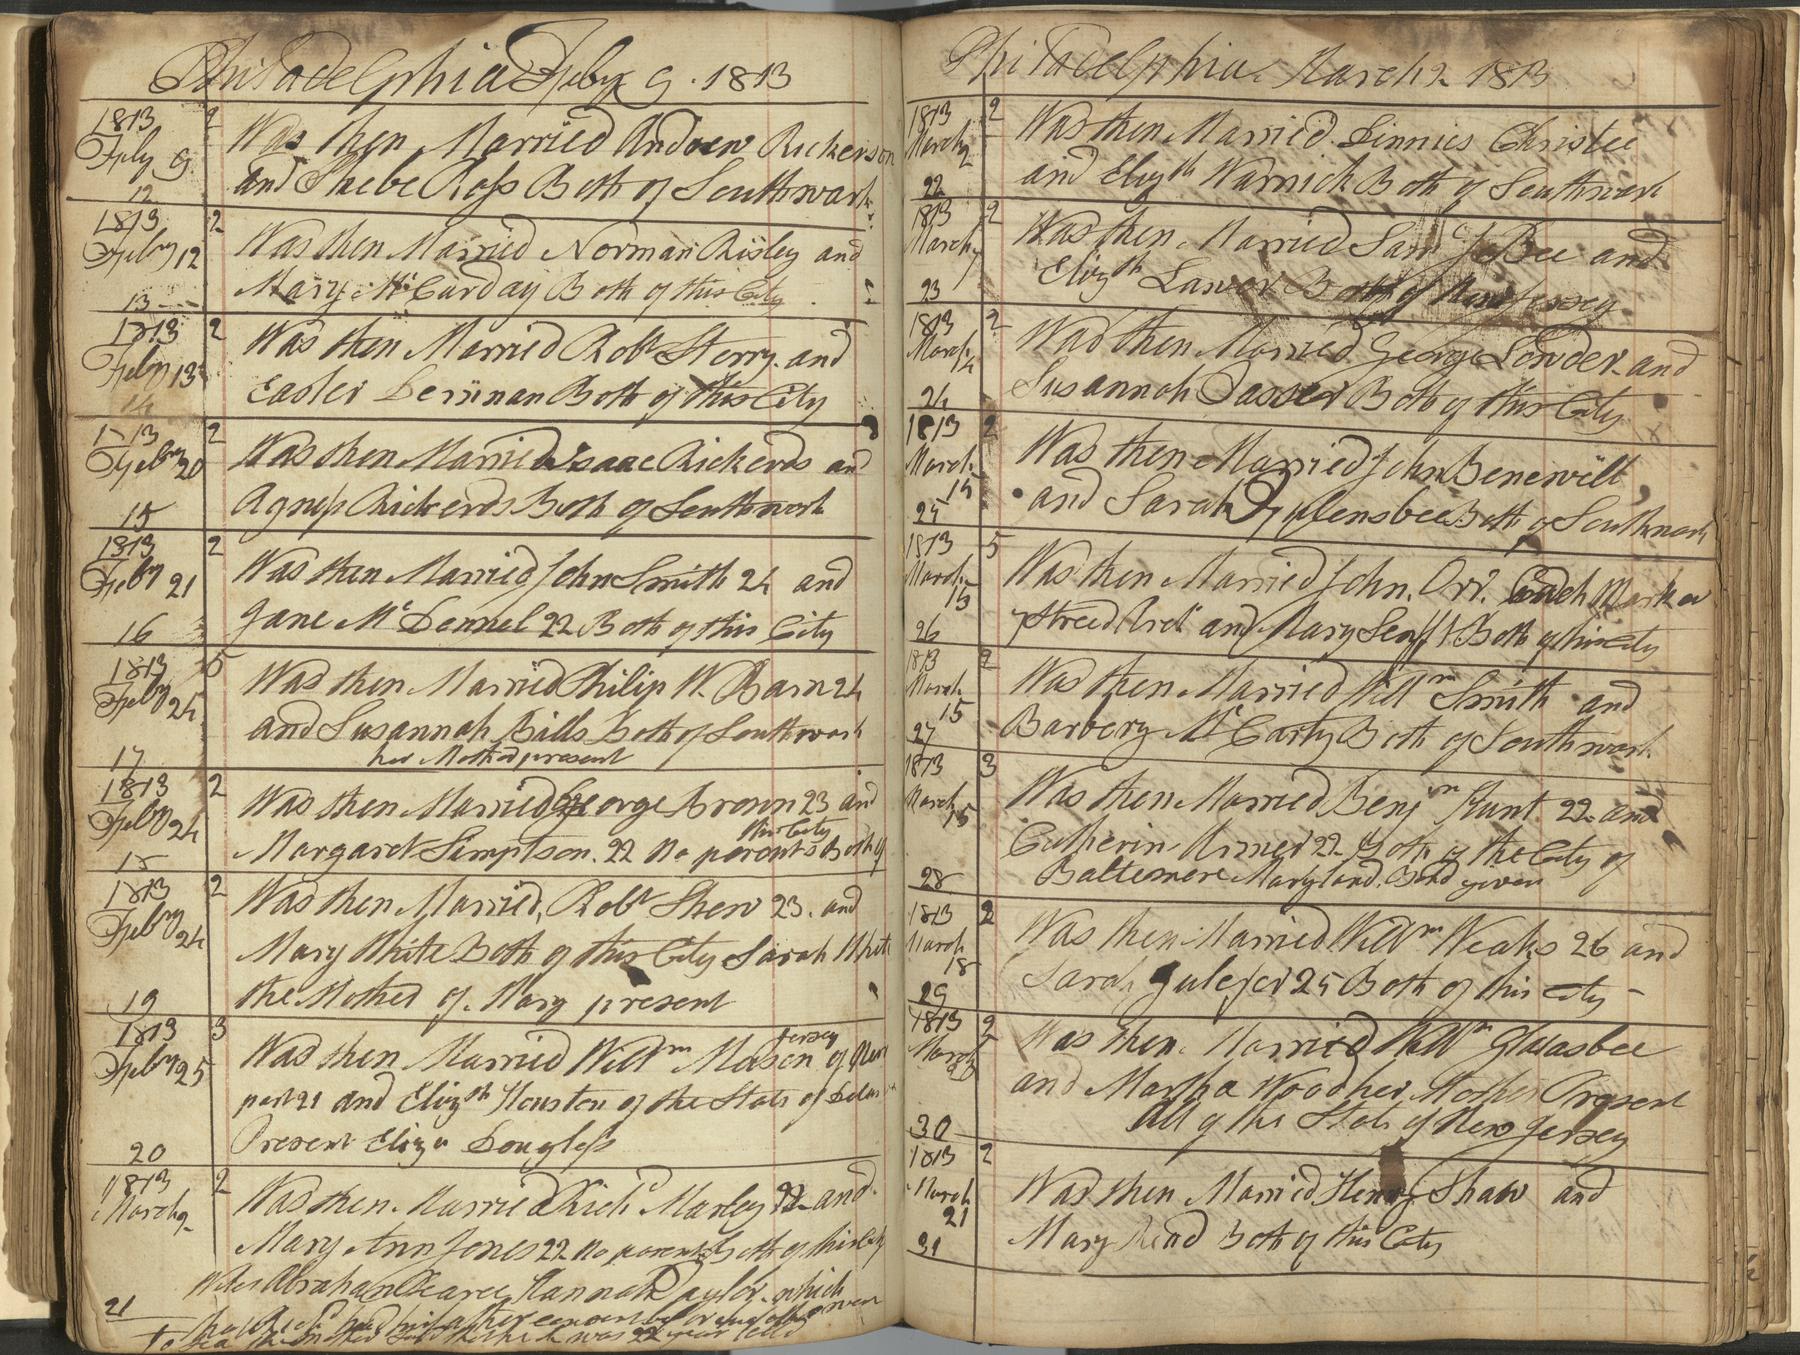 Philadelphia Feby 9. 1813
1813 2 Was then Married Andrew Rickerson
Feby 9 and Phebe Ross Both of Southwark
12
1813 2 Was then Married Norman Risley and
Feby 12 Mary Mc Curday Both of this City
13
1813 2 Was then Married Robt Sterry and
Feby 13 Easter Derinan Both of this City
14
1813 2 Was then Married Isaac Rickerds and
Feby 20 Agness Rickerds Both of Southwark
15
1813 2 Was then Married John Smith 24 and
Feby 21 Jane Mc Dennel 22 Both of this City
16
1813 5 Was then Married Philip W. Barn 24
Feby 24 and Susannah Bills Both of Southwark
her Mother present
17
1813 2 Was then Married George Brown 23 and
Feby 24 Margaret Simptson. 22 No parents Both of
this City
18
1813 2 Was then Married, Robt Shew 23. and
Feby 24 Mary White Both of this City Sarah White
the Mother of Mary present
19
1813 3 Was then Married Willm Mason of New
Jersey
Feby 25 past 21 and Elizth Houston of the State of Delaw
Present Eliza Douglass
20
1813 2 Was then Married Richd Marley 22 and
March 2 Mary Ann Jones 22 No parents Both of this City
Abraham Pearce Hannah Taylor which
21
was 22 year
Philadelphia March 2 1813
1813 2 Was then Married Dinnies Christee
March 2 and Elizth Warnick Both of Southwark
22
1813 2 Was then Married Saml J Bee and
March 7 Elizth Lawer Both of New Jersey
23
1813 2 Was then Married George Lowder and
March 14 Susannah Dasser Both of this City
24
1813 2 Was then Married John Benewill
March 15 and Sarah Both of Southwark
25
1813 5 Was then Married John. Orr. Coach Maker
March 15 Street and Mary Both of this City
26
1813 2 Was then Married Willm Smith and
March 15 Barbery Mc Carty Both of Southwark
27
1813 3 Was then Married Benjm Hunt 22 and
March 15 Catherin Armer 22 Both of the City of
Baltemore Maryland. Bond given
28
1813 2 Was then Married Willm Weaks 26 and
March 18 Sarah Gulefer 25 Both of this City
29
1813 2 Was then Married Willm Glasbee
March 20 and Martha Woodher, Mother Present
All of the State of New Jersey
30
1813 2 Was then Married Henry Shaw and
March 21 Mary Read Both of this City
31